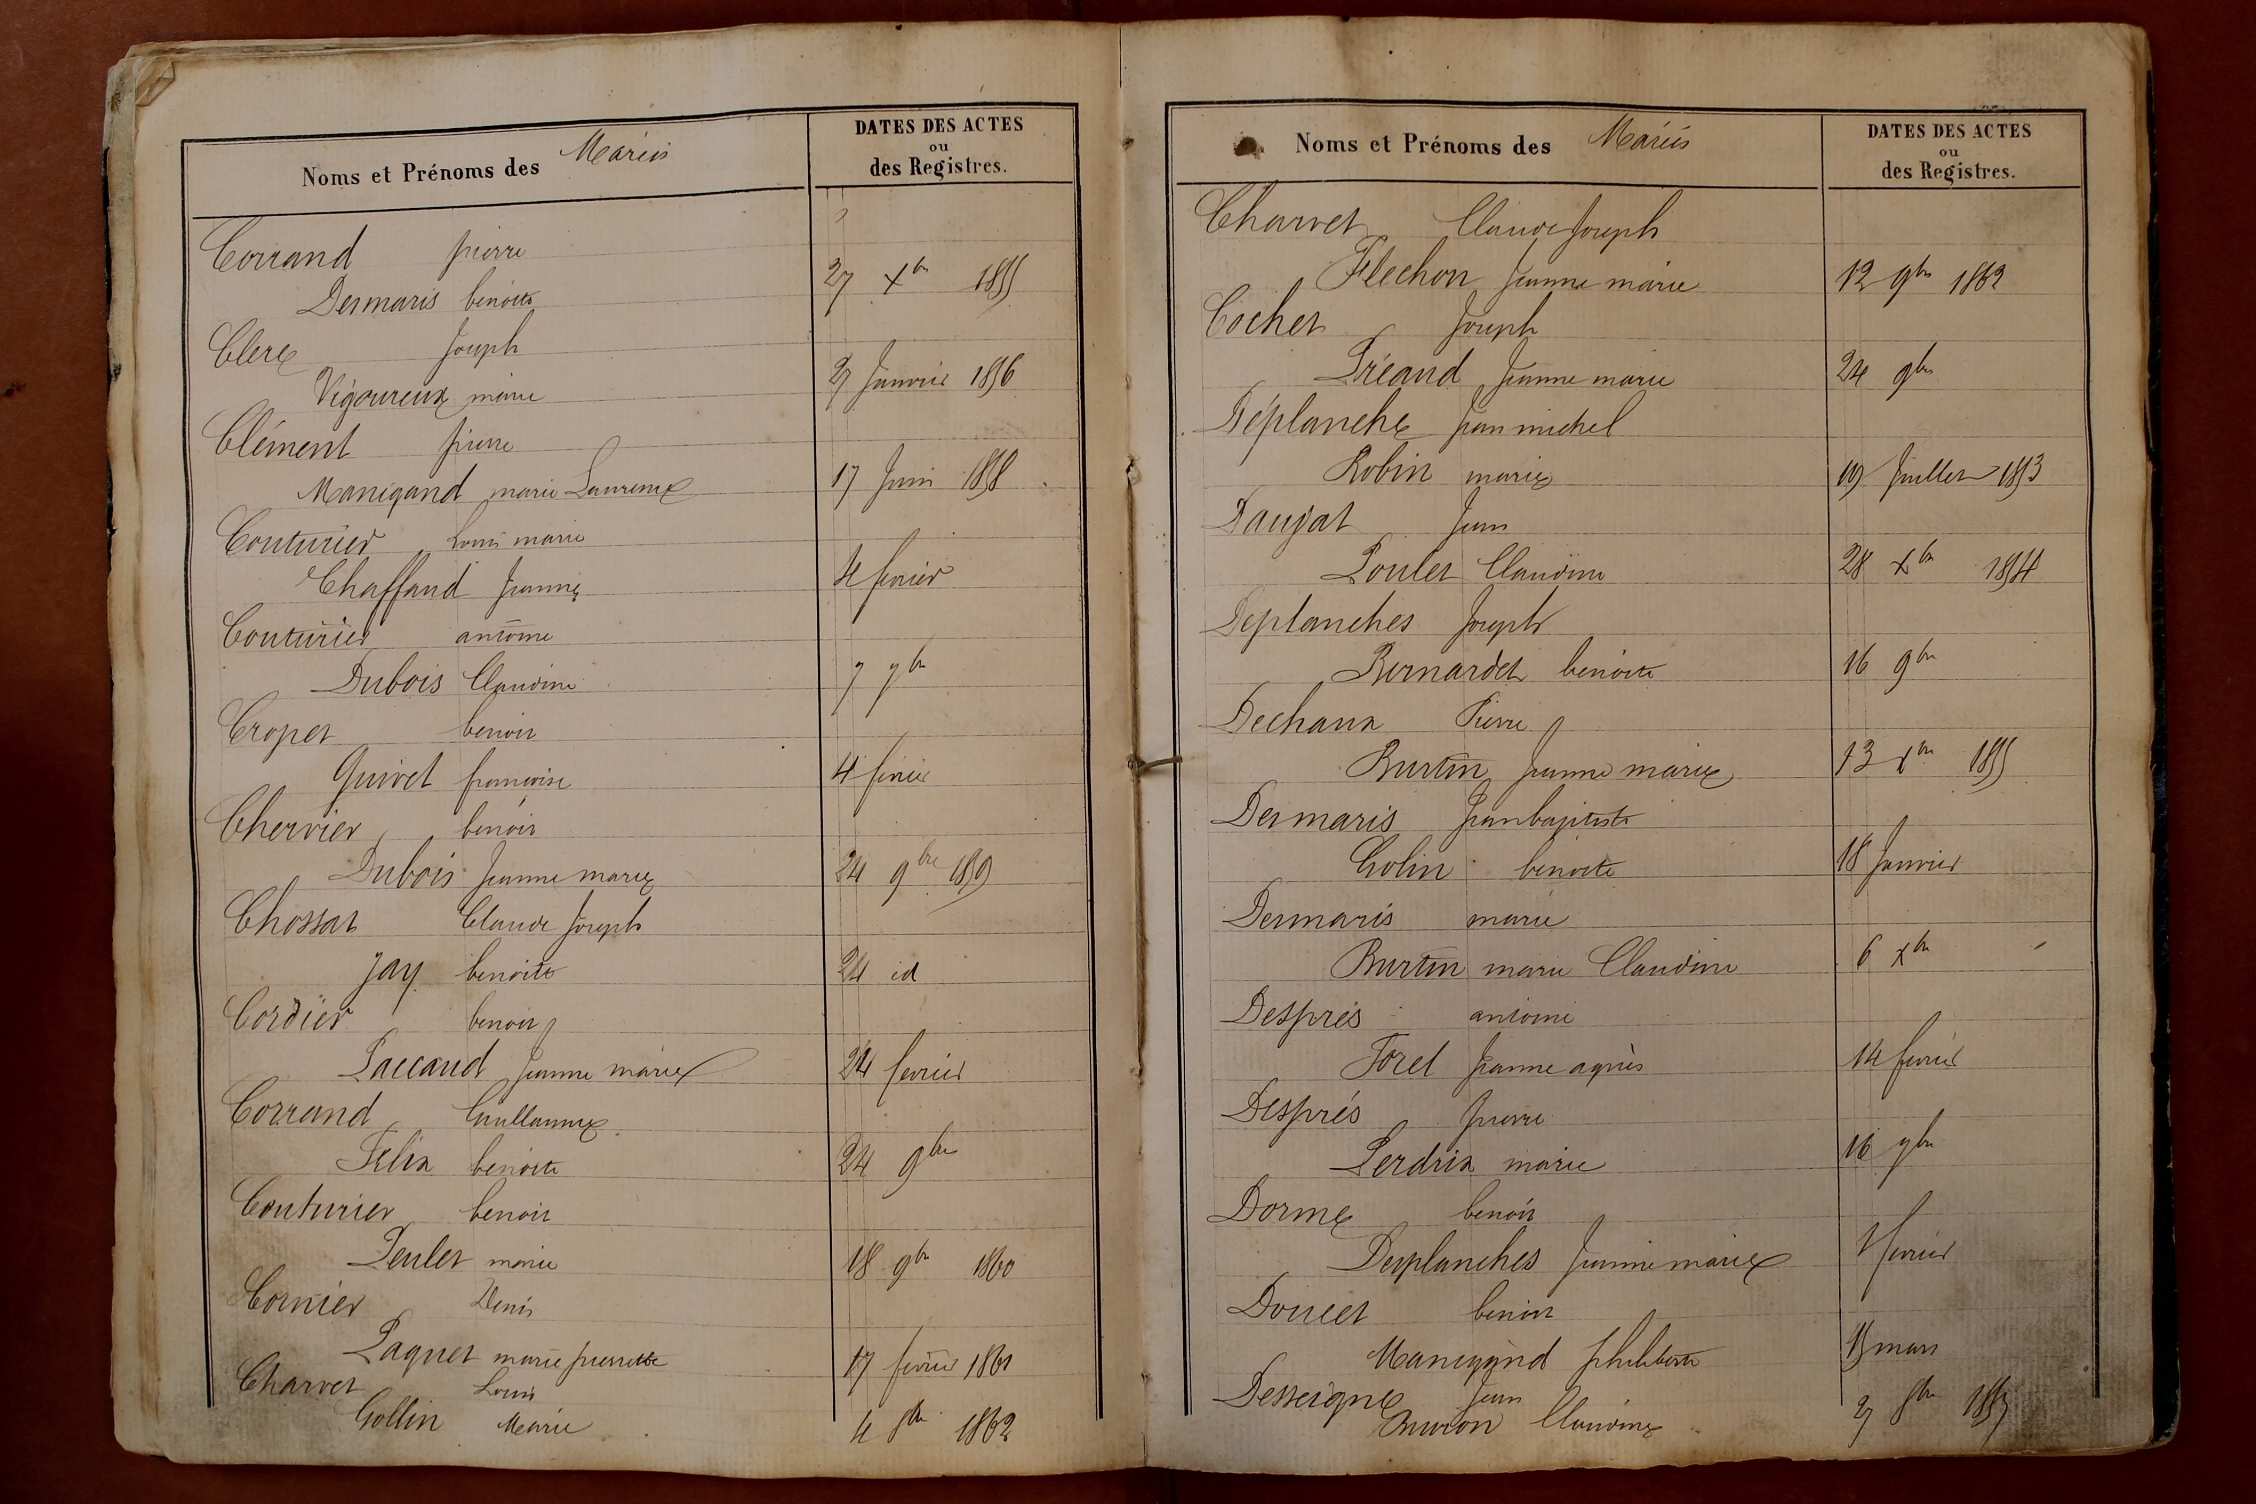 Noms et Prénoms des Mariés
DATES DES ACTES
ou
des Registres.
Corrand pierre
Desmaris benoite 27 Xbre 1855
Clerc Joseph
Vigoureux marie 27 Janvier 1856
Clément pierre
Manigand marie Laurence 17 Juin 1858
Couturier Louis marie
Chaffaud Jeanne 4 fevrier
Couturier antoine
Dubois Claudine 7 9bre
Cropet benoit
Guivet francoise 4 fevrier
Chervier benoit
Dubois Jeanne marie 24 9bre 1859
Chossat Claude Joseph
Jay benoite 24 id
Cordier benoit
Paccaud Jeanne marie 24 fevrier
Corrand Guillaume
Felix benoite 24 9bre
Couturier benoit
Peulet marie 18 9bre 1860
Cornier Denis
Paquet marie pierrette 17 fevrier 1861
Charvet Louis
Gollin Marie 4 8bre 1862
Noms et Prénoms des Mariés
DATES DES ACTES
ou
des Registres.
Charvet Claude Joseph
Flechon Jeanne marie 12 9bre 1862
Cochet Joseph
Préaud Jeanne marie 24 9bre
Déplanche Jean michel
Robin marie 19 Juillet 1853
Daujat Jean
Poulet Claudine 28 Xbre 1854
Deplanches Joseph
Bernardet benoite 16 9bre
Dechaux Pierre
Burtin Jeanne marie 13 Xbre 1855
Desmaris Jean baptiste
Golin benoite 18 Janvier
Desmaris marie
Burtin marie Claudine 6 Xbre
Desprès antoine
Forel Jeanne agnès 14 fevrier
Desprès pierre
Perdrix marie 16 9bre
Dorme benoit
Desplanches Jeanne marie 1 fevrier
Doucet benoit
Manigand philiberte 15 mars
Desseigne Jean
Buiron Claudine 27 8bre 1857